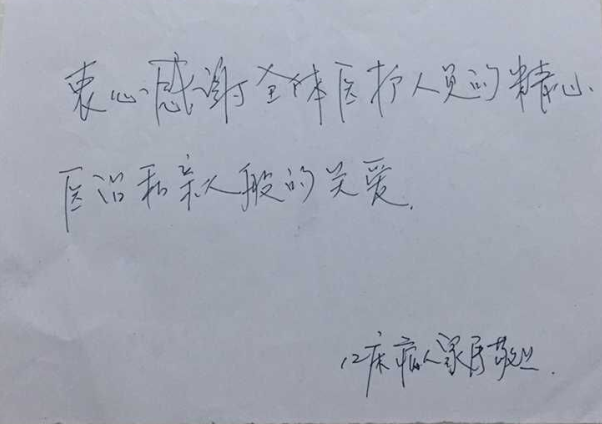 衷心感谢全体医护人员的精心
医治和亲人般的关爱.
12床病人家属敬上.